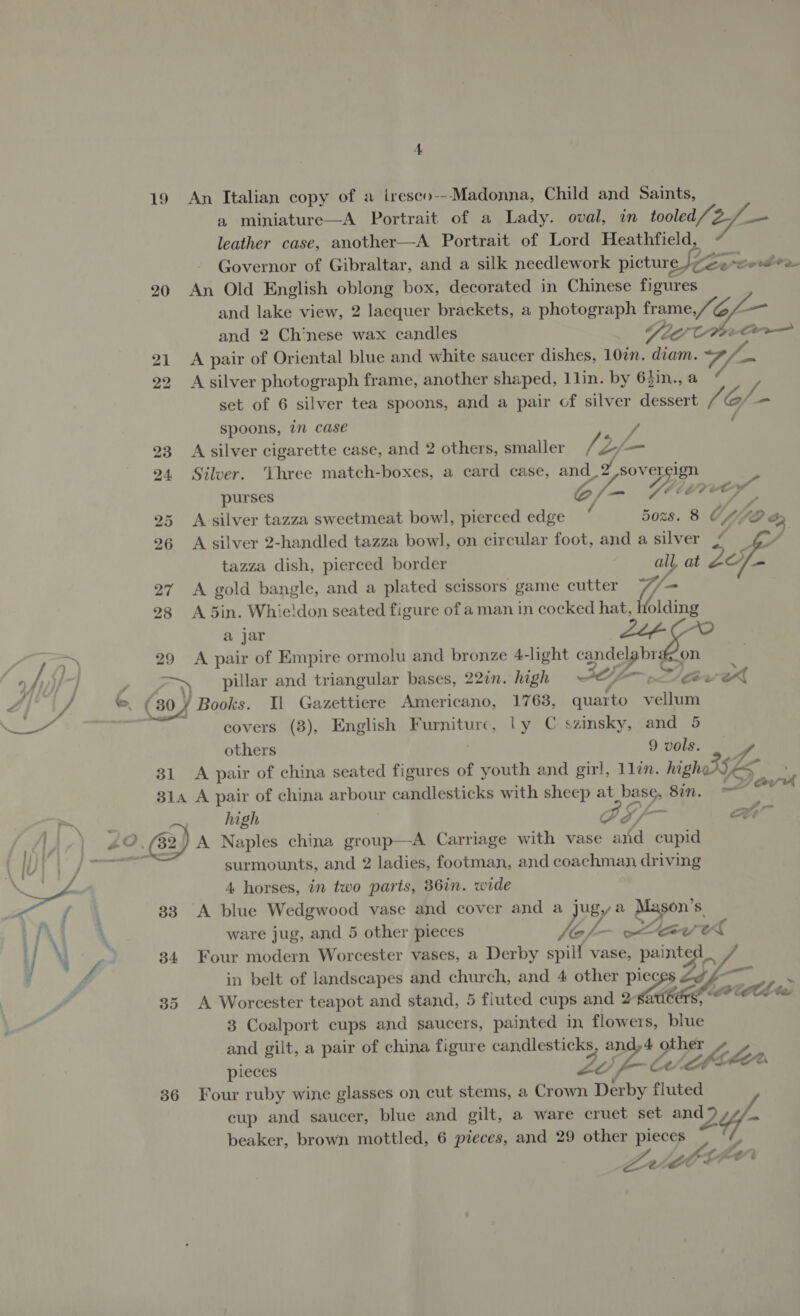 4
19 An Italian copy of a fresco--Madonna, Child and Saints,
a miniature—A Portrait of a Lady. oval, in tooled
leather case, another—A Portrait of Lord Heathfield,
Governor of Gibraltar, and a silk needlework picture
20 An Old English oblong box, decorated in Chinese figures
and lake view, 2 lacquer brackets, a photograph frame,
and 2 Chinese wax candles
21 A pair of Oriental blue and white saucer dishes, 10in. diam.
22 A silver photograph frame, another shaped, 11in. by 6½in., a
set of 6 silver tea spoons, and a pair of silver dessert
spoons, in case
23 A silver cigarette case, and 2 others, smaller 12/-
24 Silver. Three match-boxes, a card case, and 2 sovereign
purses
25 A silver tazza sweetmeat bowl, pierced edge 5ozs. 8
26 A silver 2-handled tazza bowl, on circular foot, and a silver
tazza dish, pierced border all at
27 A gold bangle, and a plated scissors game cutter
28 A 5in. Whieldon seated figure of a man in cocked hat, holding
a jar
29 A pair of Empire ormolu and bronze 4-light candelabra on
pillar and triangular bases, 22in. high
30 Books. Il Gazettiere Americano, 1763, quarto vellum
covers (3), English Furniture, by C szinsky, and 5
others 9 vols.
31 A pair of china seated figures of youth and girl, 11in. high
31A A pair of china arbour candlesticks with sheep at base, 8in.
high
32 A Naples china group—A Carriage with vase and cupid
surmounts, and 2 ladies, footman, and coachman driving
4 horses, in two parts, 36in. wide
33 A blue Wedgwood vase and cover and a jug, a Mason's
ware jug, and 5 other pieces
34 Four modern Worcester vases, a Derby spill vase, painted
in belt of landscapes and church, and 4 other pieces
35 A Worcester teapot and stand, 5 fluted cups and 2 saucers,
3 Coalport cups and saucers, painted in flowers, blue
and gilt, a pair of china figure candlesticks, and 4 other
pieces
36 Four ruby wine glasses on cut stems, a Crown Derby fluted
cup and saucer, blue and gilt, a ware cruet set and
beaker, brown mottled, 6 pieces, and 29 other pieces